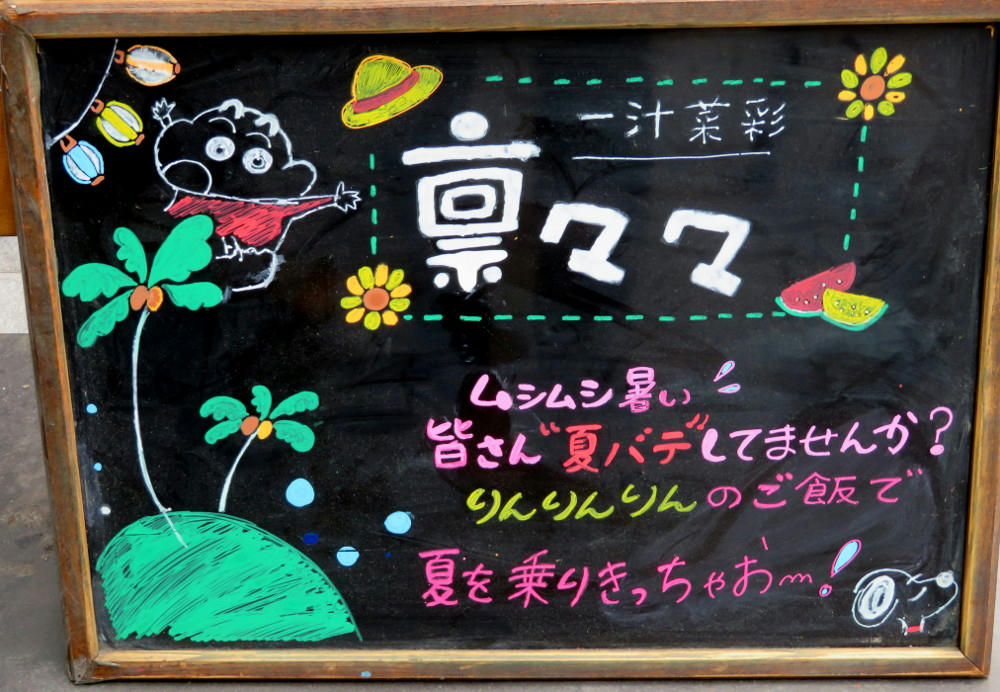 一汁菜彩
凛々々
ムシムシ暑い
皆さん"夏バテ"してませんか?
りんりんりんのご飯で
夏を乗りきっちゃお〜!